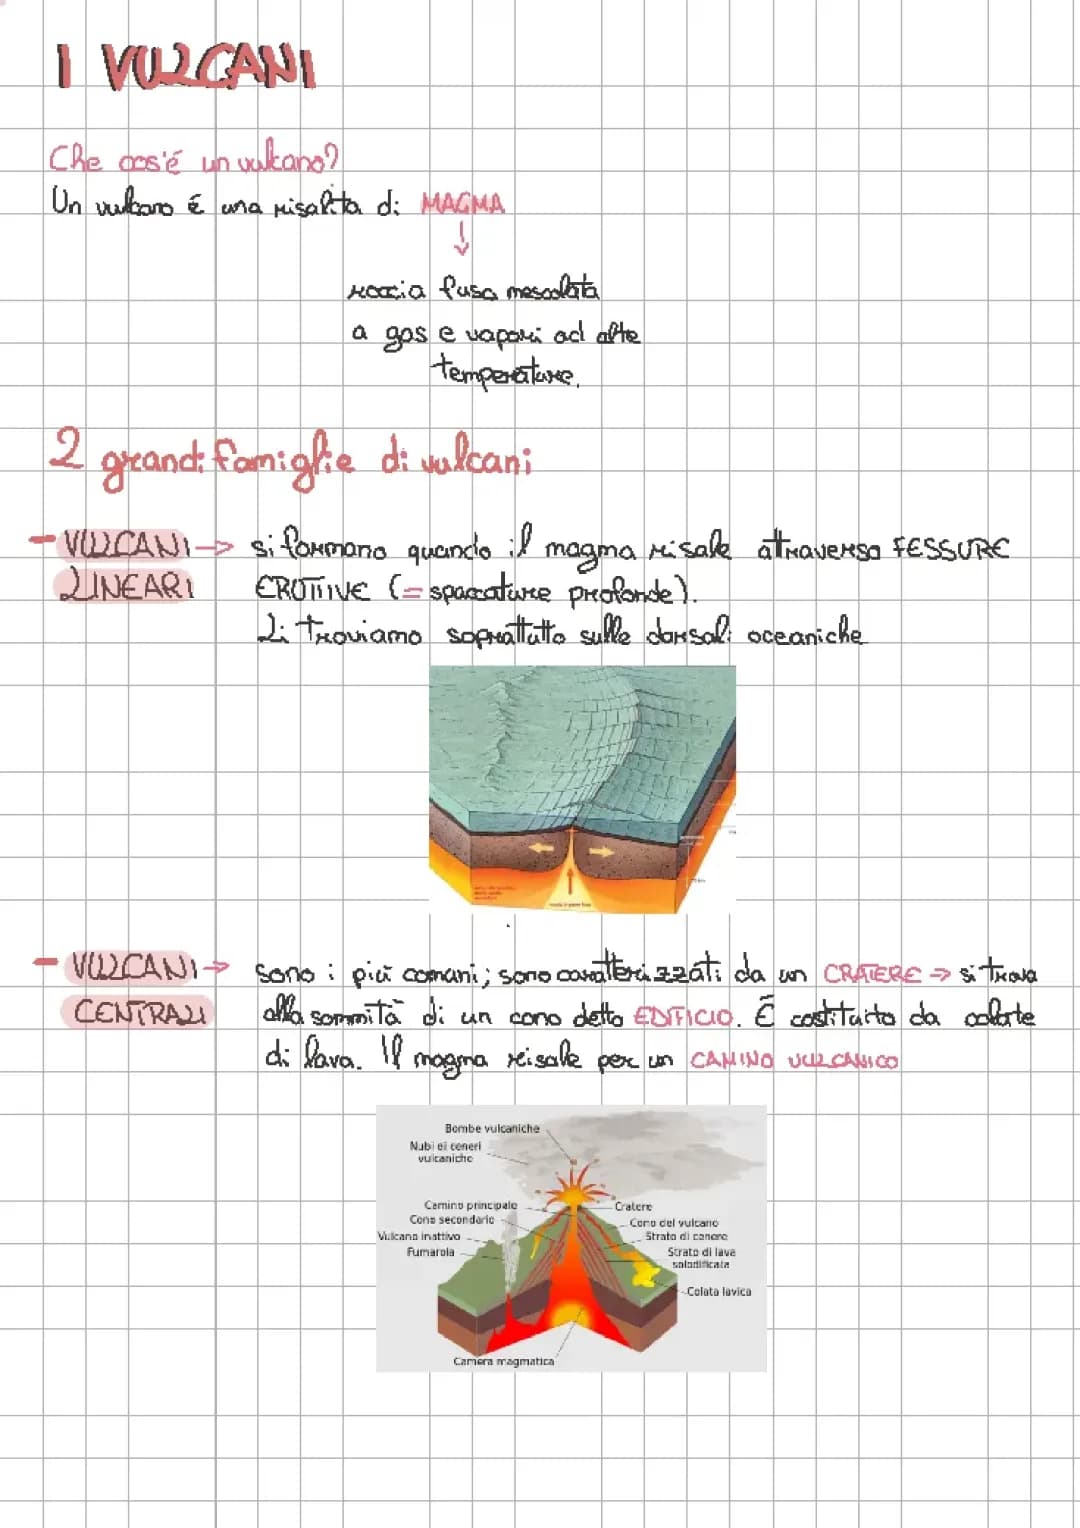 I VULCANI
Che cos'é un vulcano?
Un vulcano é una risalita di MAGMA
↓
roccia fusa mescolata
a gas e vapori ad alte
temperature.
2 grandi famiglie di vulcani
- VULCANI → si formano quando il magma risale attraverso FESSURE
LINEARI ERUTTIVE (= spaccature profonde).
Li troviamo soprattutto sulle dorsali oceaniche
- VULCANI → sono i più comuni; sono caratterizzati da un CRATERE → si trova
CENTRALI alla sommità di un cono detto EDIFICIO. É costituito da colate
di lava. Il magma risale per un CAMINO VULCANICO
Bombe vulcaniche
Nubi di ceneri
vulcaniche
Camino principale
Cratere
Cono secondario
Cono del vulcano
Vulcano inattivo
Strato di cenere
Fumarola
Strato di lava
solodificata
Colata lavica
Camera magmatica